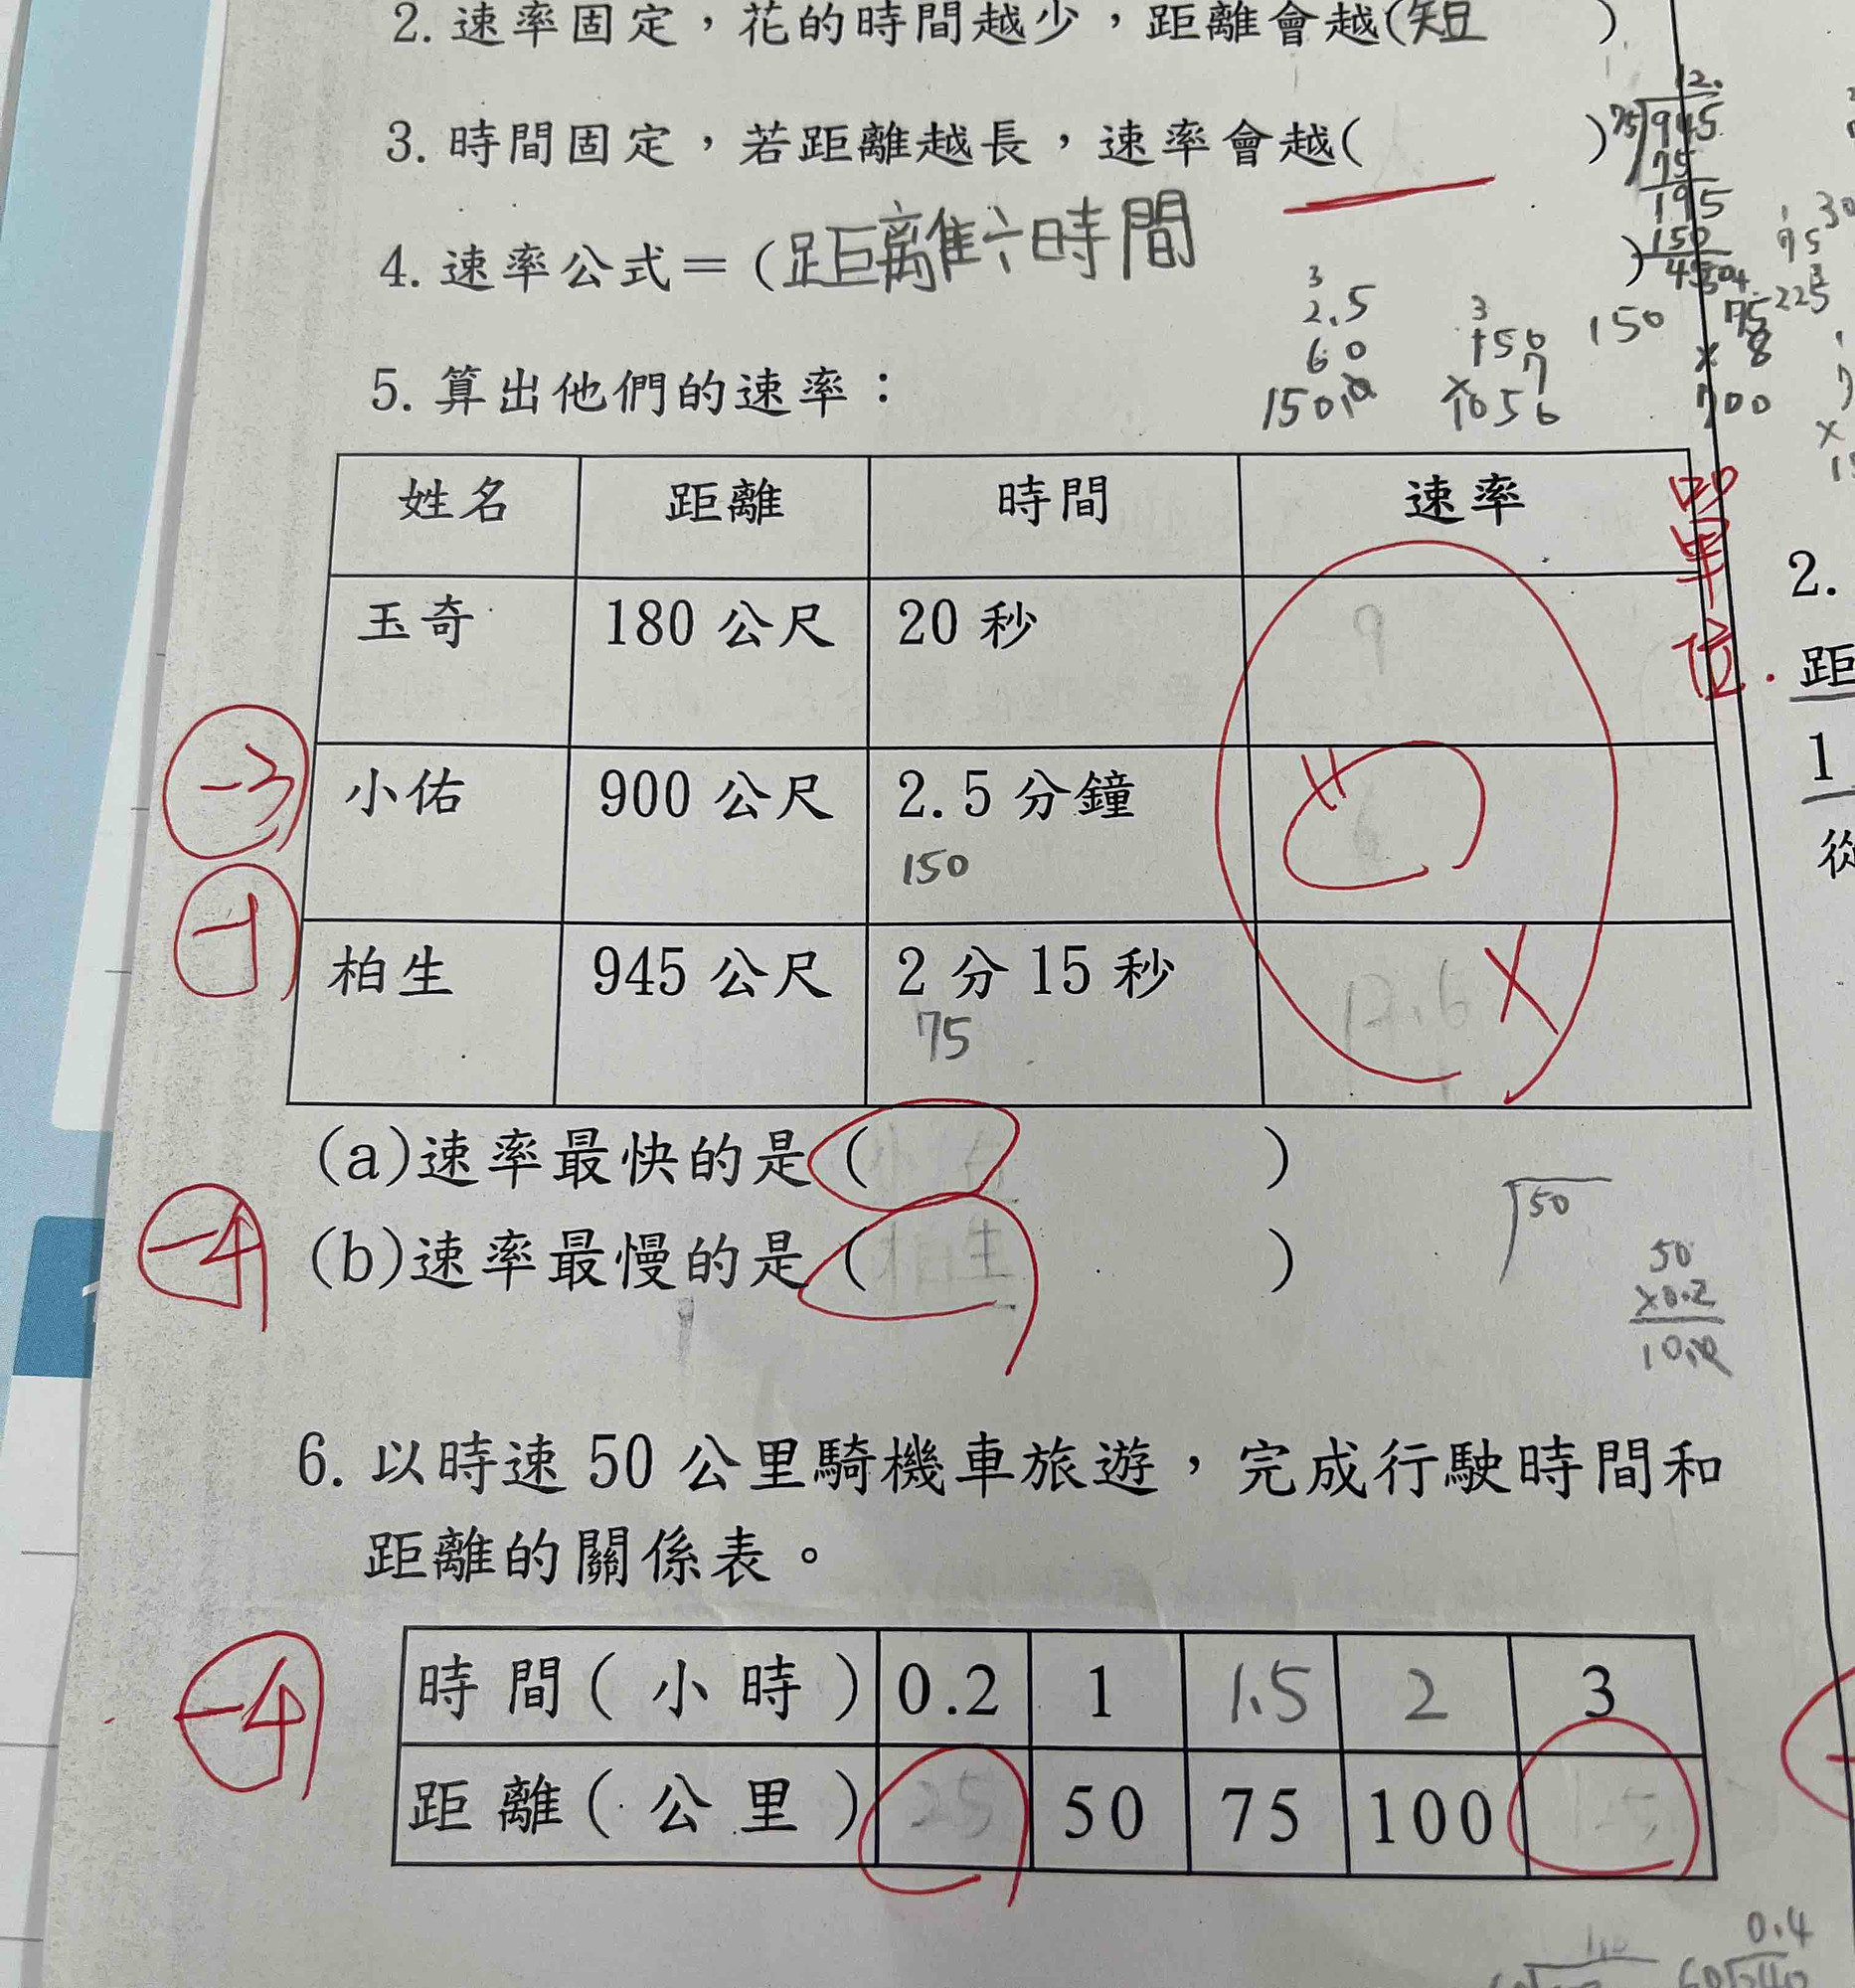 2. 速率固定，花的時間越少，距離會越(短)
3. 時間固定，若距離越長，速率會越( )
4. 速率公式＝(距離÷時間)
5. 算出他們的速率：
姓名 距離 時間 速率
單位
玉奇 180 公尺 20 秒 9
小佑 900 公尺 2.5 分鐘
150
柏生 945 公尺 2 分 15 秒 12.6 X
75
(a)速率最快的是( )
(b)速率最慢的是( )
6. 以時速 50 公里騎機車旅遊，完成行駛時間和
距離的關係表。
時間(小時) 0.2 1 1.5 2 3
距離(公里) 25 50 75 100
-3
-1
-4
-4
12.
75 945
75
195
150
45
2.5
60
150.0
150
7
1050
150
75
×8
700
50
50
×0.2
10.0
2.
距
1
從
0.4